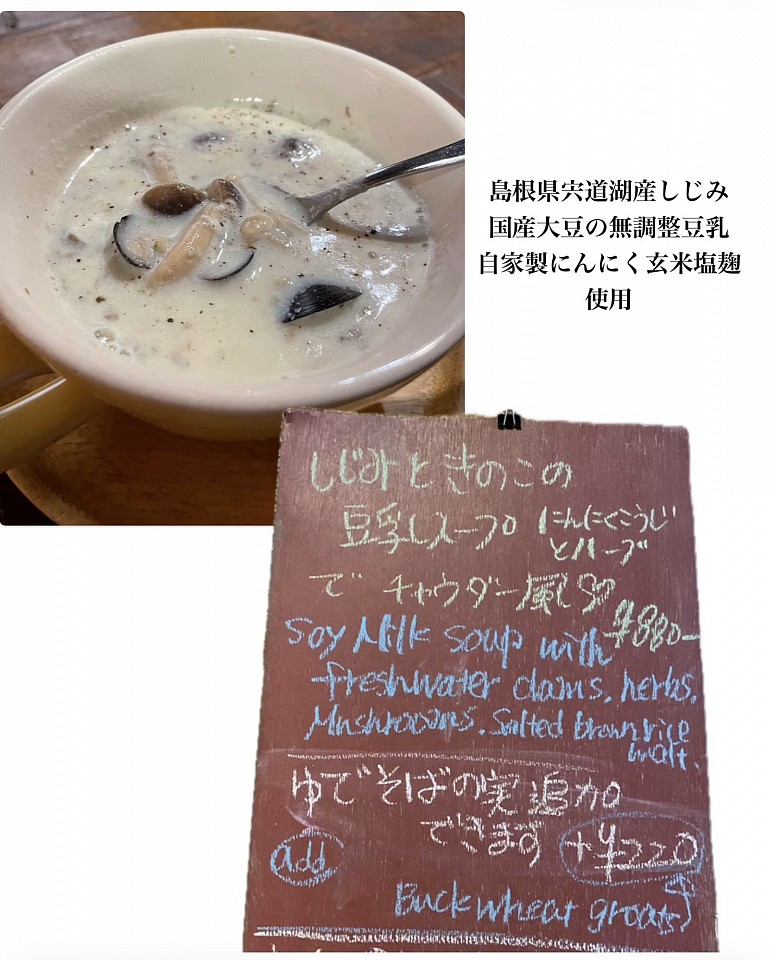 島根県宍道湖産しじみ
国産大豆の無調整豆乳
自家製にんにく玄米塩麹
使用
しじみときのこの
豆乳スープ にんにくこうじ
とハーブ
で チャウダー風♡
¥880-
Soy Milk Soup with
freshwater clams, herbs,
Mushrooms. Salted brown rice
malt.
ゆでそばの実追加
できます +¥220
add
Buckwheat groats)